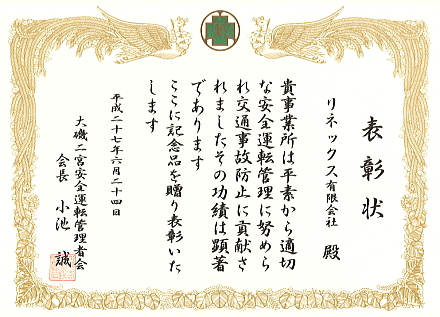 表彰状
リネックス有限会社 殿
貴事業所は平素から適切
な安全運転管理に努めら
れ交通事故防止に貢献さ
れましたその功績は顕著
であります
ここに記念品を贈り表彰いた
します
平成二十七年六月二十四日
大磯二宮安全運転管理者会
会長 小池 誠